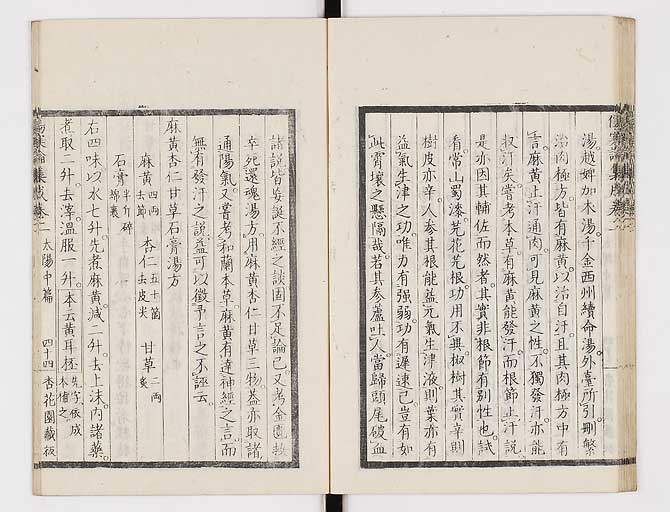 湯越婢加朮湯千金西州續命湯外臺所引刪繁
治肉極方皆有麻黃以治自汗且其肉極方中有
言麻黃止汗通肉可見麻黃之性不獨發汗亦能
收汗矣嘗考本草有麻黃能發汗而根節止汗說
是亦因其輔佐而然者其實非根節有別性也試
看常山蜀漆芫花芫根功用不異椒樹其實辛則
樹皮亦辛人參其根能益元氣生津液則葉亦有
益氣生津之功唯力有強弱功有遲速已豈有如
此霄壤之懸隔哉若其參蘆吐人當歸頭尾破血
諸說皆妄誕不經之談固不足論已又考金匱救
卒死還魂湯方用麻黃杏仁甘草三物蓋亦取諸
通陽氣又嘗考和蘭本草麻黃有達神經之言而
無有發汗之說益可以徵予言之不誣云
麻黃杏仁甘草石膏湯方
麻黃四兩去節 杏仁五十箇去皮尖 甘草二兩炙
石膏半斤碎綿裹
右四味以水七升先煮麻黃減二升去上沫內諸藥
煮取二升去滓溫服一升本云黃耳杯
傷寒論集成卷二 太陽中篇 四十四 杏花園藏板